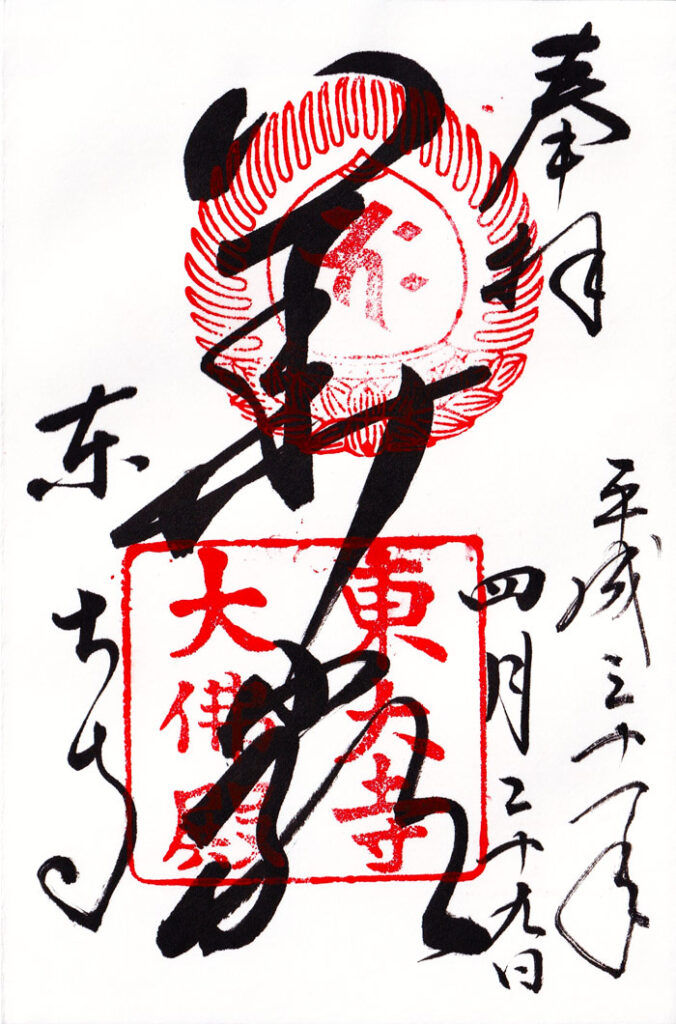 奉拝
平成三十一年
四月二十九日
華嚴
東大寺
大佛殿
東大寺